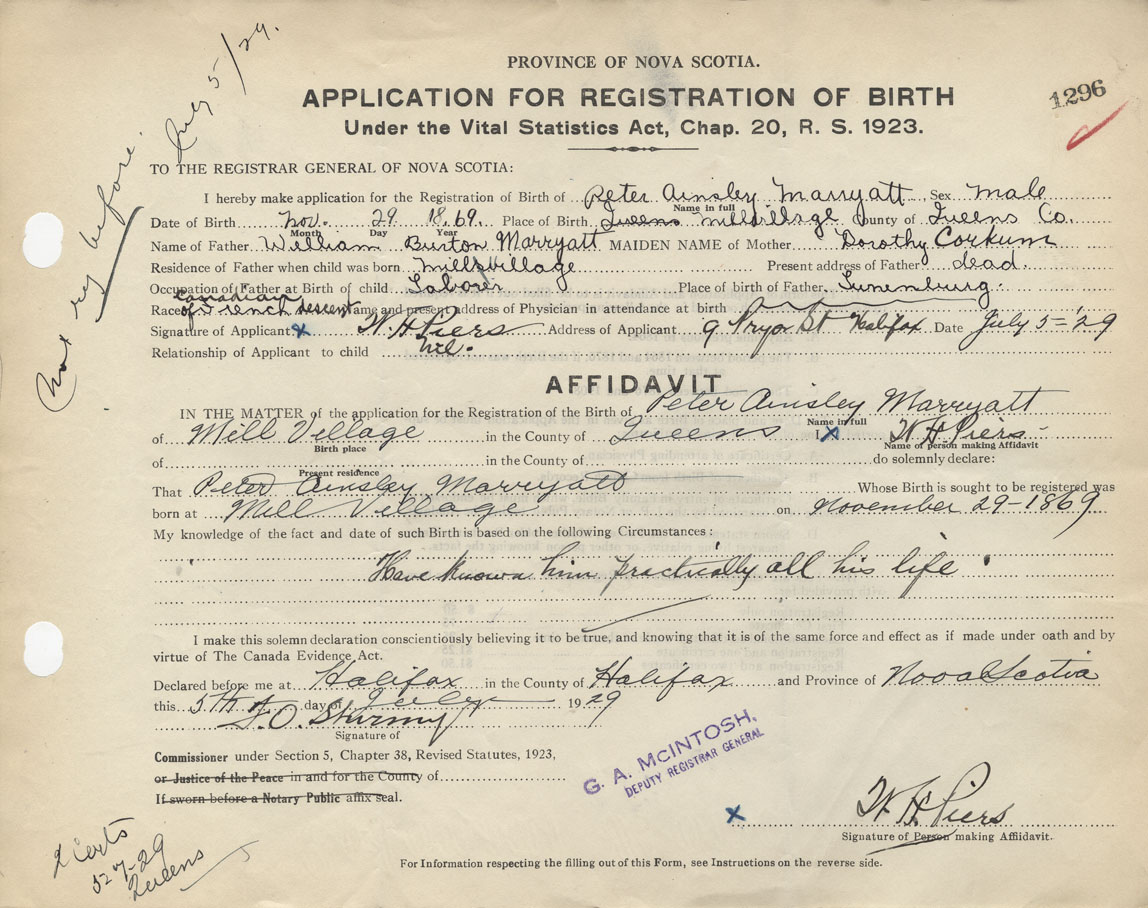 Not reg before
July 5/29.
PROVINCE OF NOVA SCOTIA.
APPLICATION FOR REGISTRATION OF BIRTH
1296
Under the Vital Statistics Act, Chap. 20, R. S. 1923.
TO THE REGISTRAR GENERAL OF NOVA SCOTIA:
I hereby make application for the Registration of Birth of Peter Ainsley Marryatt Sex Male
Name in full
Date of Birth Nov. 29 1869. Place of Birth Queens Millvillage County of Queens Co.
Month Day Year
Name of Father William Burton Marryatt MAIDEN NAME of Mother Dorothy Corkum
Residence of Father when child was born Millvillage Present address of Father dead.
Occupation of Father at Birth of child Laborer Place of birth of Father Lunenburg.
Canadian
Race of French descent Name and present address of Physician in attendance at birth
Signature of Applicant x W. H Piers Address of Applicant 9 Pryor St Halifax Date July 5 = '29
Relationship of Applicant to child nil.
AFFIDAVIT
IN THE MATTER of the application for the Registration of the Birth of Peter Ainsley Marryatt
Name in full
of Mill Village in the County of Queens I x W H Piers
Birth place Name of person making Affidavit
of in the County of do solemnly declare:
Present residence
That Peter Ainsley Marryatt Whose Birth is sought to be registered was
born at Mill Village on November 29-1869
My knowledge of the fact and date of such Birth is based on the following Circumstances:
Have known him practically all his life
I make this solemn declaration conscientiously believing it to be true, and knowing that it is of the same force and effect as if made under oath and by
virtue of The Canada Evidence Act.
Declared before me at Halifax in the County of Halifax and Province of Nova Scotia
this 5th day of July 1929
Signature of
Commissioner under Section 5, Chapter 38, Revised Statutes, 1923,
or Justice of the Peace in and for the County of
If sworn before a Notary Public affix seal.
G. A. McINTOSH,
DEPUTY REGISTRAR GENERAL
x W. H. Piers
Signature of Person making Affidavit.
2 Certs
5-7-29
Queens
For Information respecting the filling out of this Form, see Instructions on the reverse side.